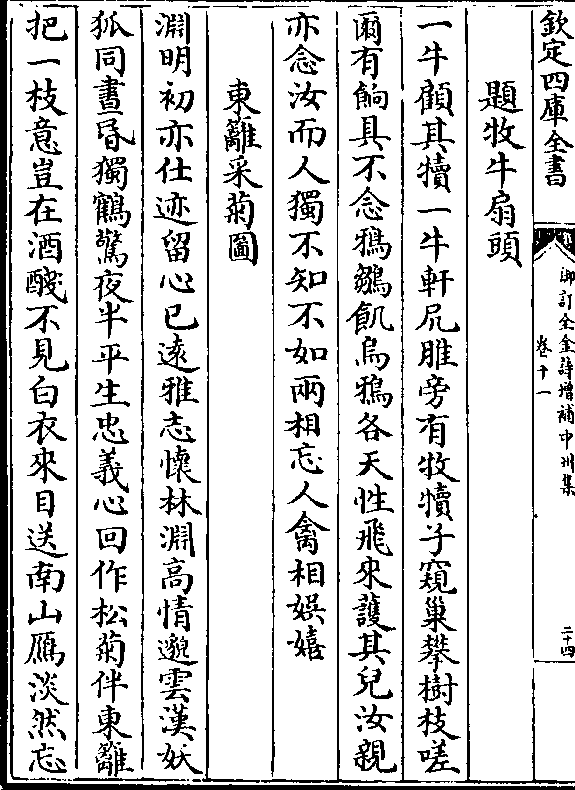 欽定四庫全書
御訂全金詩增補中州集
卷十一
二十四
題牧牛扇頭
一牛顧其犢一牛軒尻脽旁有牧犢子窺巢攀樹枝嗟
爾有餉具不念鵶雛飢烏鵶各天性飛來護其兒汝親
亦念汝而人獨不知不如兩相忘人禽相娛嬉
東籬采菊圖
淵明初亦仕迹留心已遠雅志懷林淵高情邈雲漢妖
狐同晝昏獨鶴驚夜半平生忠義心回作松菊伴東籬
把一枝意豈在酒醆不見白衣來目送南山鴈淡然忘